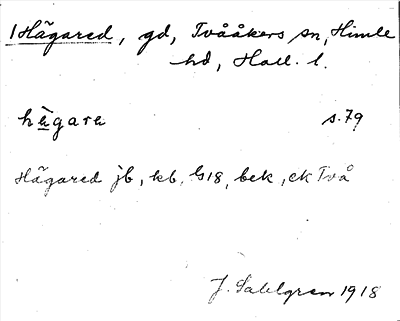 1 Hägared, gd, Tvååkers sn, Himle
hd, Hall. l.
hägarɐ s. 79
Hägared jb, kb, G18, bek, ck Två
J. Sahlgren 1918